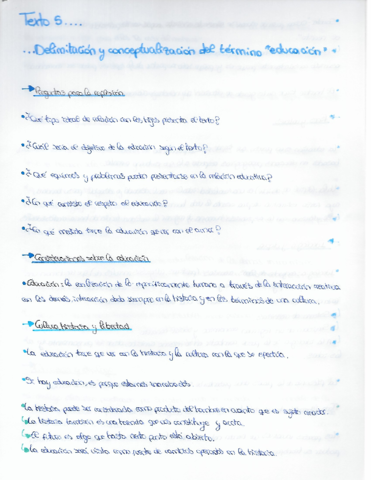 Texto 5....
...Delimitación y conceptualización del término "educación".
→ Preguntas para la reflexión
• ¿Qué tipo ideal de relación con los hijos presenta el texto?
• ¿Cuál sería el objetivo de la educación según el texto?
• ¿Qué equívocos y problemas pueden presentarse en la relación educativa?
• ¿En qué consiste el respeto al educando?
• ¿En qué medida tiene la educación que ver con el
→ Consideraciones sobre la educación
• Educación: la realización de lo específicamente humano a través de la interacción
con los demás; interacción dada siempre en la historia y en los de una cultura.
→ Cultura historia y libertad
• La educación tiene que ver con la historia y la cultura con la que se
• Si hay educación, es porque estamos inacabados.
La historia puede ser considerada como producto del hombre en cuanto que es sujeto
La historia también es una herencia que nos constituye y
El futuro es algo que hasta cierto punto está abierto.
La educación será vista como parte de operados en la historia.